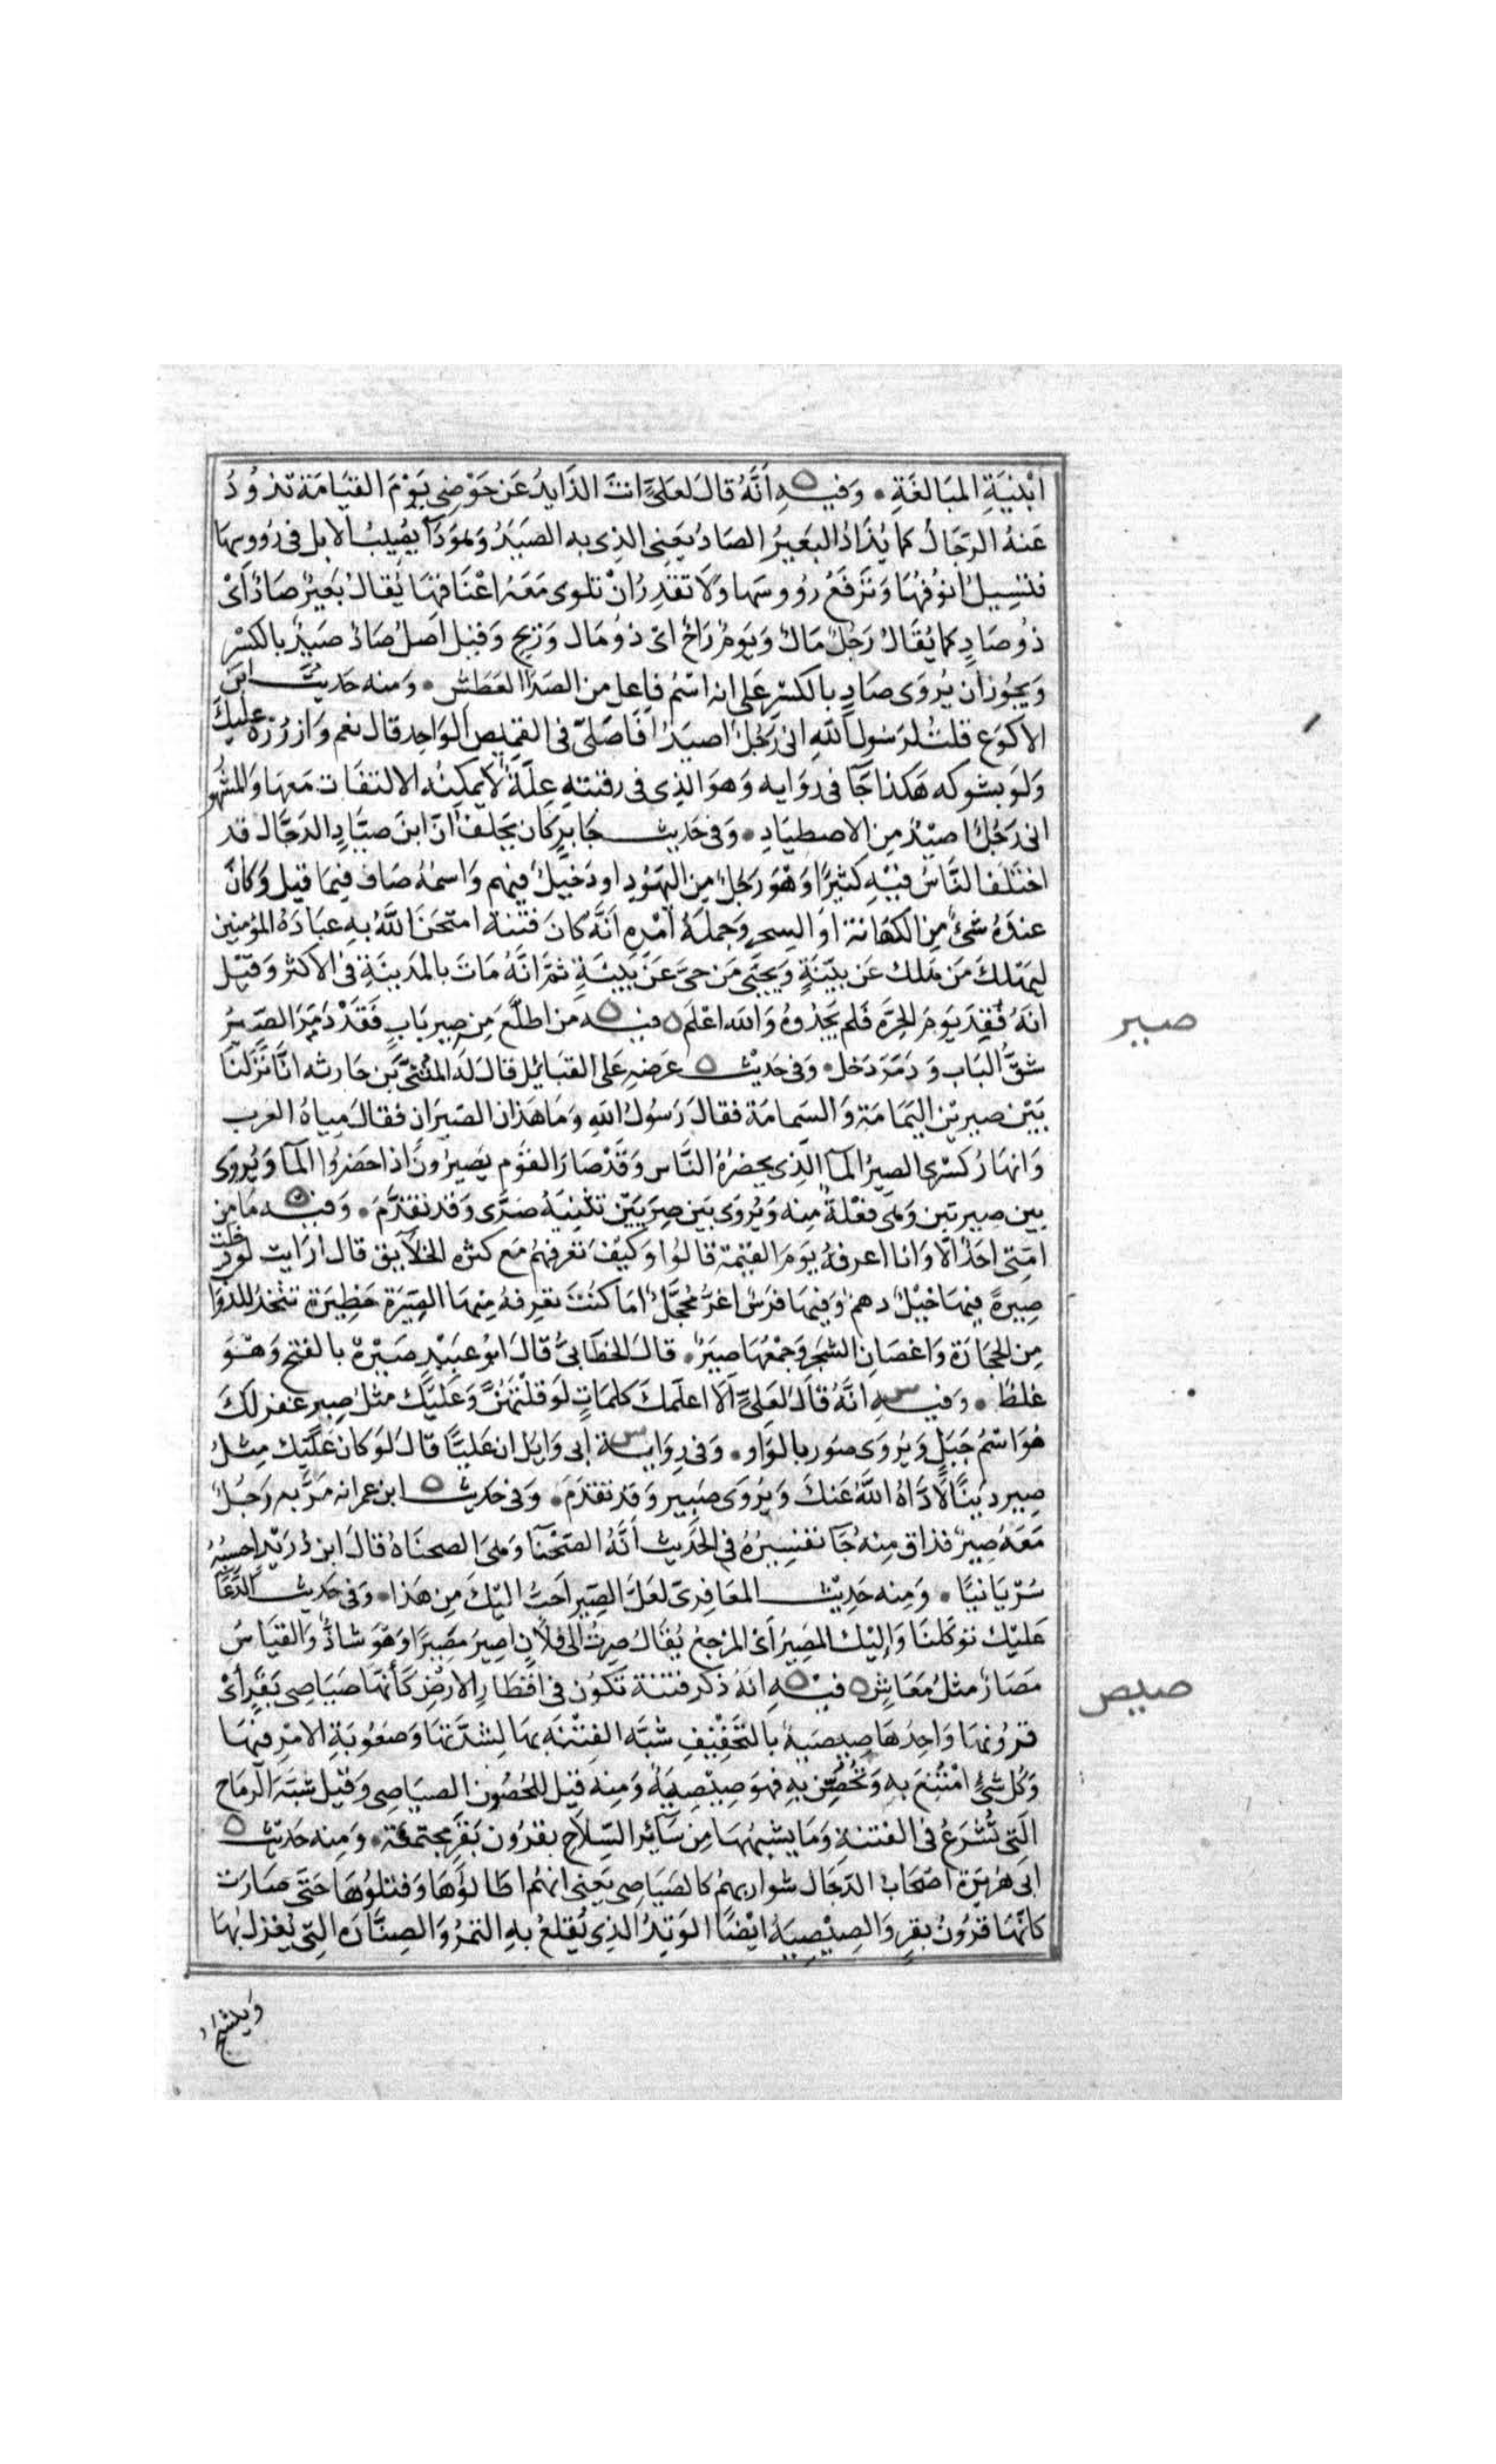 ابْنيَةِ المبَالغَةِ • وَفيـهِ ه أنَّهُ قالَ لعَلىّ انتَ الذَايدُ عَن حَوْضِى يَوْمَ القيَامَة تذوُدُ
عَنهُ الرّجَالَ كمَا يُذَادُ البَعيرُ الصَادُ يَعنِى الذِى به الصَيَدُ وَهوَ دَآ يُصِيبُ الابل فى رُؤُوسِهَا
فتَسِيلُ انوُفُهَا وَتَرفَعُ رؤوسَها وَلَا تقدِرُ انْ تلوى مَعَهُ اعْنَاقهَا يُقالُ بَعيرٌ صَادٌ اَىْ
ذُو صَادٍ كمَا يُقَالُ رَجُلٌ مَالٌ وَيَومٌ رَاحٌ اىْ ذوُ مَال وَرِيح وَقيل اَصلُ صَادٍ صَيِدٌ بالكَسْرِ
وَيجُوز ان يُروَى صَادٍ بالكسْر عَلى انه اسْمُ فاعِل من الصَدَا العَطَش • وَمنه حَديثُ ابن
الاكوَع قلتُ لرَسُول اللهِ انى رَجُلٌ اصيَدُ افَاصَلّى فى القميص الوَاحِد قال نعم وَازرُرْهُ عليكَ
وَلوَ بشوكه هَكذا جَآ فى روَايه وَهوَ الذِى فى رقبتهِ عِلّةٌ لَا يمكِنُه الالتفَات مَعهَا وَالمشهُو
انى رَجُلٌ اصيْدُ مِن الاصطيَادِ • وَفى حَديث جَابرٍ كان يَحلفُ انّ ابنَ صيَّادٍ الدَجَّال قد
اختَلفَ النَّاسُ فيْهِ كثيرًا وَهْوَ رَجُلٌ مِن اليَهُودِ او دَخيلٌ فيهِم وَاسمُهُ صَاف فيمَا قيل وَكانَ
عندَهُ شئٌ مِن الكَهَانة اوَ السِحرِ وَجملَةُ امْرِهِ انَّه كانَ فتنَة امتحَنَ اللهُ بهِ عبَادَهُ المؤمِنين
ليَهلكَ مَن هَلك عَن بيّنَةٍ وَيَحيَى مَن حىَّ عَن بَينَةٍ ثمَّ انّهُ مَاتَ بالمدَينَةِ فى الاكثر وَقيْل
انهُ فقِدَ يَومَ الحرّهِ فلم يَجدُوهُ وَالله اعْلَم ه فيـه ه مَن اطلَّعَ مِن صِير بَابٍ فَقَدْ دَمَرَ الصّيرُ
شقُّ البَاب وَدَمَرَ دَخل • وَفى حَديْث ه عَرضهِ عَلى القبَائل قالَ لَه المثنّىَ بن حَارثه انَّا نزَلنَا
بَيْن صيريْن اليَمَامَة وَالسَمامَة فقالَ رَسُولُ اللهِ وَمَا هَذان الصّيرَان فقالَ ميَاهُ العَرب
وَانهارُ كسْرى الصيرُ المآ الّذِى يحضرُهُ النَّاس وَقَدْ صَارَ القَوْم يَصِيرُونَ اذا حَضَروُا المآ وَيُروَى
بين صيرتين وَهى فعْلةٌ منِه وَيُروَى بَين صِرَيَيْن تثنِيَهُ صَرًى وَقَد تقدَّمَ • وَفيـه ه مَا مِن
امَّتى احَدٌ الّا وَانا اعرفهُ يَومَ القيَمة قالُوا وَكَيْفَ تعرفهُم مَع كثره الخلَايق قال ارَايت لو دخلت
صِيرةً فيهَا خَيلٌ دهمٌ وَفيهَا فرَسٌ اغرُّ مُحجَّلٌ امَا كنتَ تعرِفهُ مِنهَا الصِيَرَة حَظِيرَة تتّخذُ للدّوَا
مِن الحجَارَة وَاغصَانِ الشجَر وَجمْعُهَا صيَرٌ • قالَ الخطّابىُّ قالَ ابوُ عبَيْدٍ صَيْرةٌ بالفتح وَهْـوَ
غلطٌ • وَفيـه س انَّهُ قالَ لعَلىّ الَا اعلمكَ كلمَاتٍ لَو قلْتَهُنَّ وَعَليْكَ مثل صِيرٍ غفر لَكَ
هُوَ اسْمُ جَبَلٍ وَيُروَى صور بالوَاو • وَفى رِوَايـة س ابى وَايل ان عَليّا قالَ لَو كان عَليْك مِثلُ
صِير دَينًا لادَّاهُ اللهُ عَنكَ وَيُروَى صَبير وَقد تقدَمَ • وَفى حَديث ه ابن عمر انه مَرَّ به رَجُلٌ
مَعَهُ صِيرٌ فذاق منِه جَآ تفسِيرُهُ فى الحَديث انّهُ الصَحْنَا وَهىَ الصحنَاهُ قالَ ابن دُرَيْد احسبُهُ
سُرْيَانيّا • وَمِنه حَدِيْث المعَافرىّ لعَلَّ الصِير احَبُّ اليْكَ مِن هَذا • وَفى حَديث الدّعَآ
عَليْك توَكلنَا وَاليْك المصِيرُ اَىْ المرْجعُ يُقَالُ صِرتُ الى فلَان اصِيرُ مَصِيرًا وَهْوَ شاذٌّ وَالقيَاسُ
مَصَارٌ مثلُ مَعَاش ه فيـهِ ه انهُ ذكر فتنة تكوُن فى اقطَارِ الارْضِ كَأنهَا صَيَاصِى بَقَرٍ اَىْ
قرُونهَا وَاحِدُهَا صِيصيَةٌ بالتَخفيْفِ شبَّهَ الفتْنةَ بهَا لِشدَّتهَا وَصَعُوبَةِ الامْرِ فيهَا
وَكُل شئٍ امْتُنِعَ بهِ وَتُحُصِّن بِهِ فهوَ صِيْصِيَةٌ وَمِنه قيَل للحُصُون الصيَاصِى وَقيْل شبّهَ الرِمَاح
الّتِى تُشْرَعُ فى الفتنةِ وَمَا يشبههَا مِن سَآئر السِّلَاح بقرُون بَقَرٍ مجتمعَة • وَمنه حَديْث ه
ابى هُرَيرَة اصْحَابُ الدّجَال شوَاربهُمْ كالصَيَاصِى يَعنى انهُم اطَالوُهَا وَفتلوُهَا حَتّى صَارَت
كأنّهَا قرُونُ بقرٍ وَالصِيْصِيَةُ ايْضًا الوَتِدُ الذِى يُقلعُ بهِ التمرُ وَالصِنَّارَه التِى يُغزلُ بهَا
صير
صيص
وَينسَج